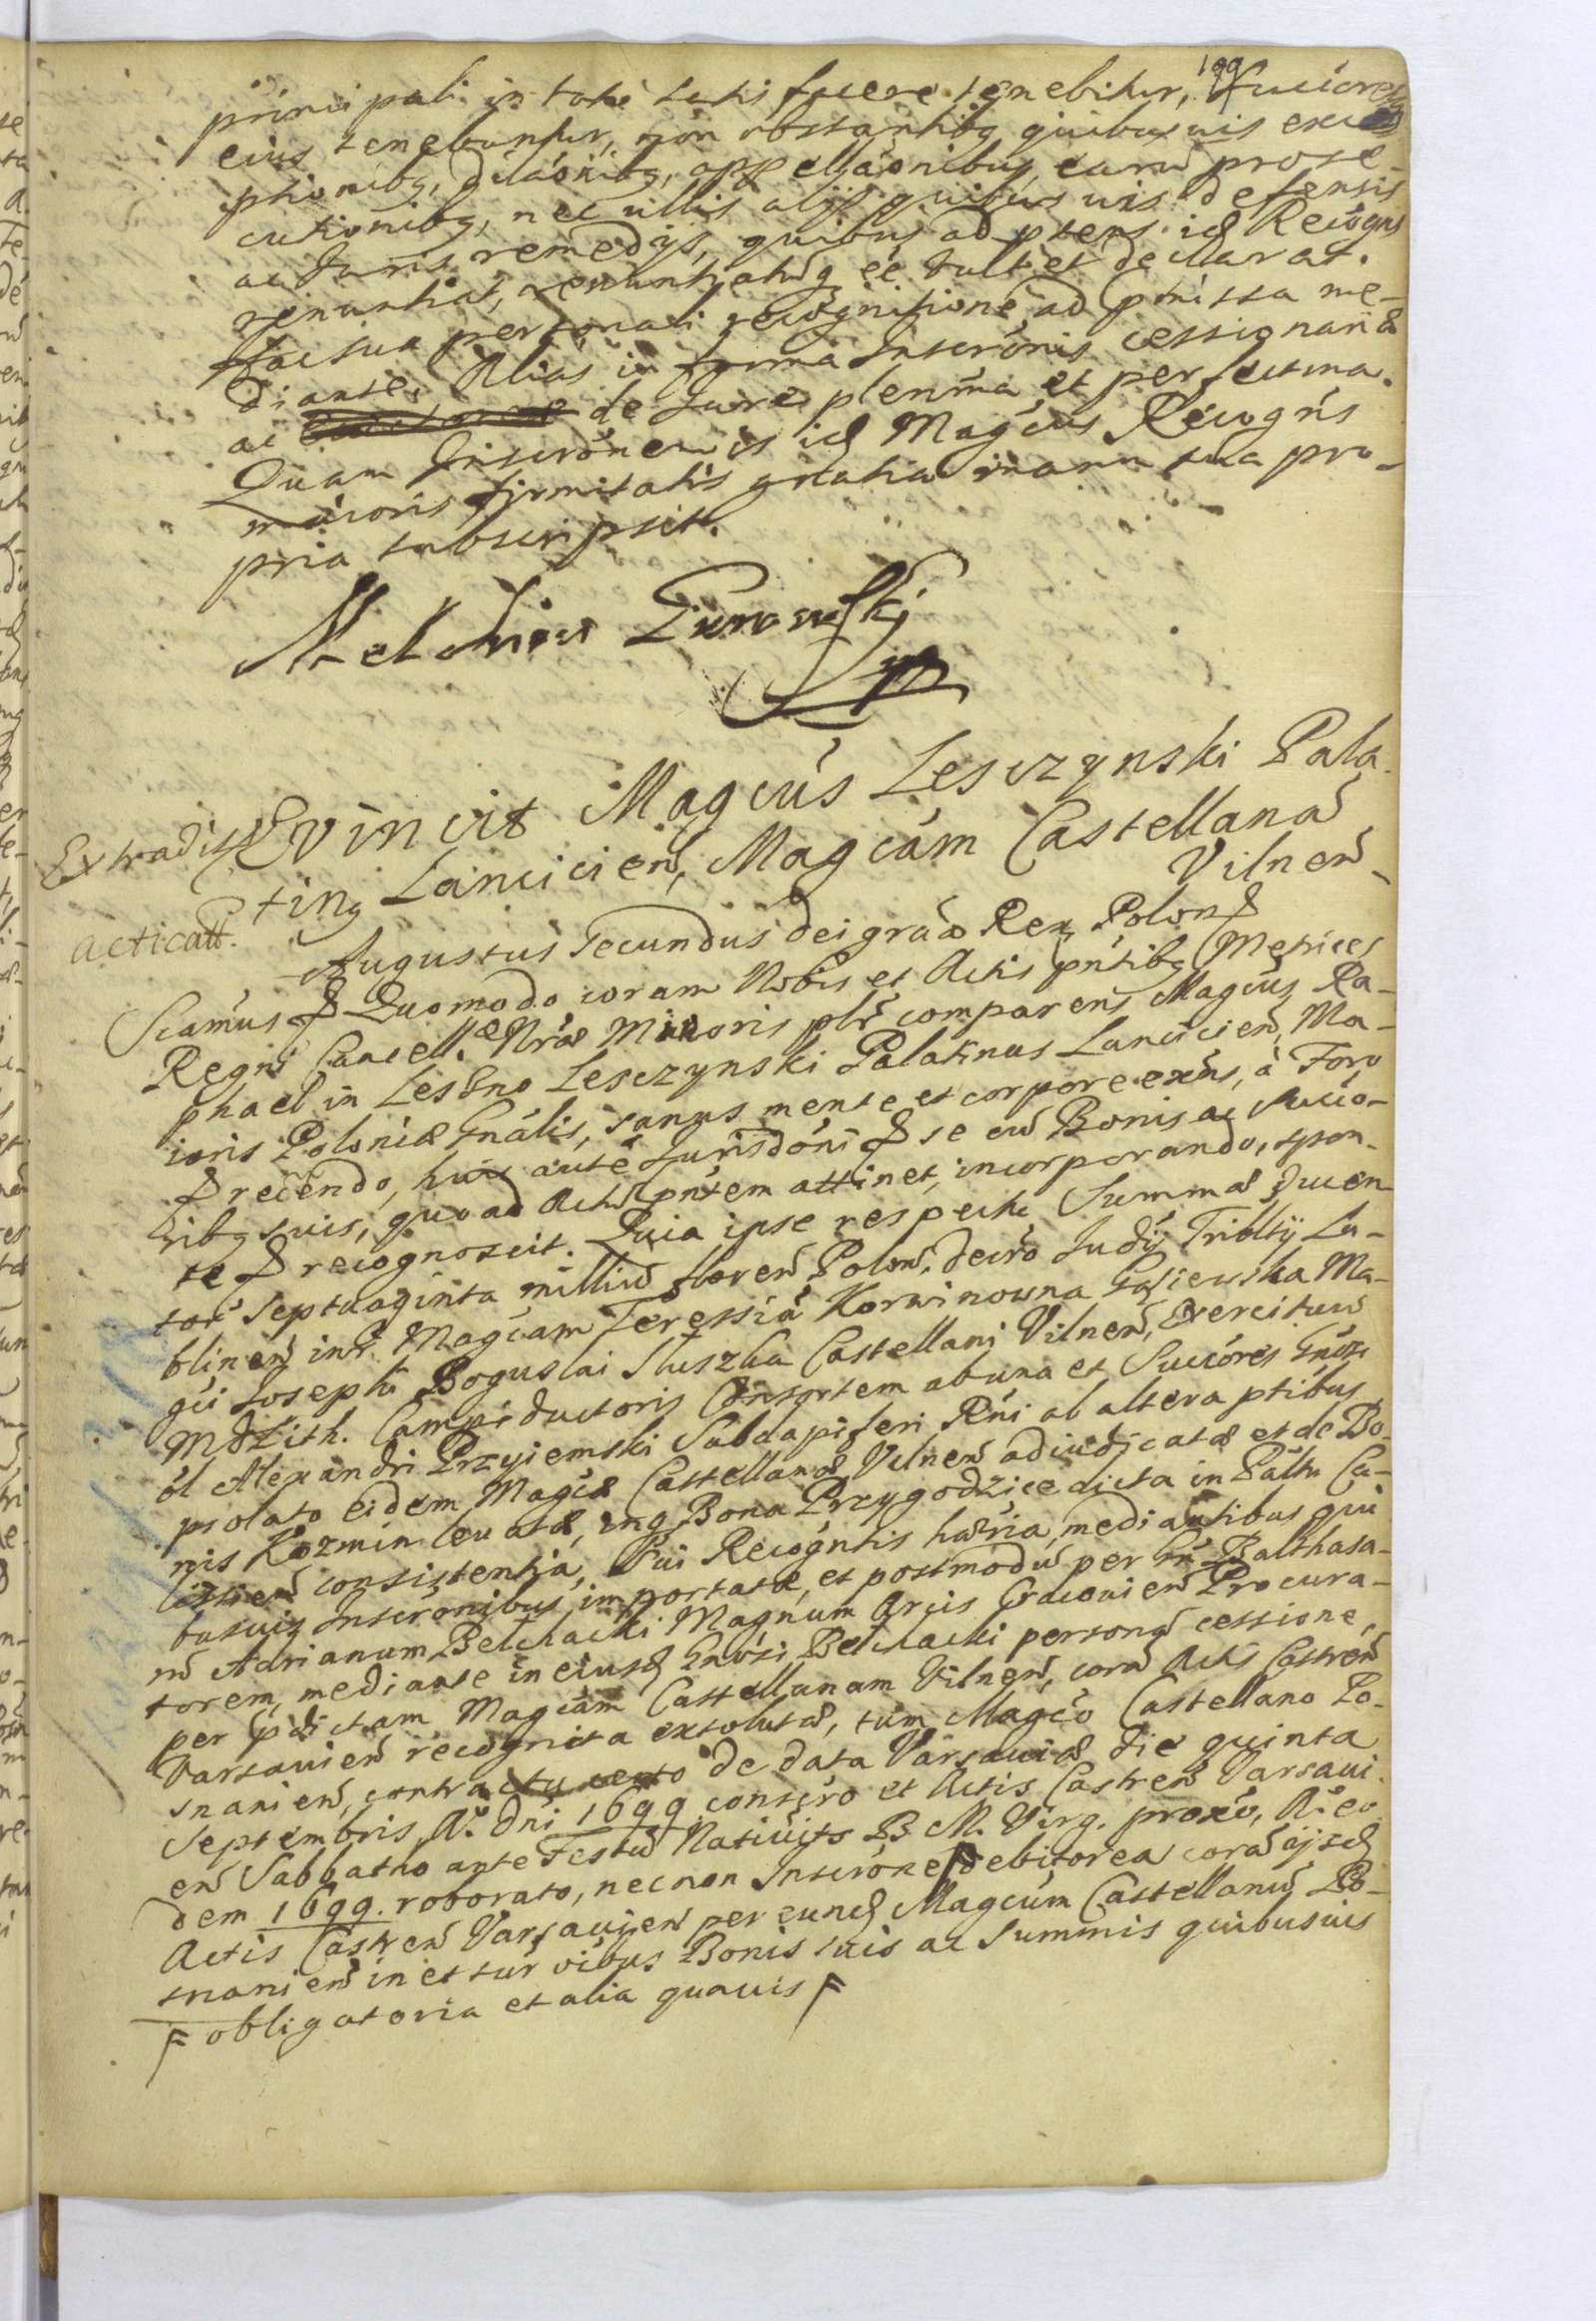 199
principali in toto satis facere tenebitur, Succores
eius tenebuntur, non obstantibq quibusuis exce
ptionibq, dilaonibq, appellaonibus, earu prose-
cutionibq, nec ullis alijs quibus uis defensis
ac Juris remedijs, quibus ad ptens id Recogns
renuntiat, renuntiatuq eē vult et declarat.
hac sua personali recognitione ad pmissa me-
diante. Alias in forma Inscronis cessionariæ
ac de Jure plenma et perfectma.
Quam Inscronem is id Magcus Recogns
maioris firmitatis gratia manu sua pro-
pria subscripsit.
Melchior Gurowski
mp
Extradit
Evincit Magcus Lesczynski Pala-
tinq Lancicien, Magcam Castellana
Vilnen-
acticatt.
Augustus Secundus Dei graa Rex Polon &
Scamus & Quomodo coram Nobis et Actis pntibq Metrices
Regni Cancellæ Nræ Minoris plr comparens Magcus Ra-
phael in Leszno Lesczynski Palatinus Lancicien, Ma-
ioris Poloniæ Gnalis, sanus mente et corpore exns, à Foro
& recendo, huic autē Jurisdoni & se cu Bonis ac Succo-
ribq suis, quoad Actu pntem attinet, incorporando, spon-
te & recognoscit. Quia ipse respectu Summæ Ducen
tor Septuaginta milliu floren Polon, decro Judij Tribltij Lu-
blinen intr Magcam Teressia Korwinowna Gosiewska Ma-
gci Josephi Boguslai Sluszka Castellani Vilnen, Exercituu
MDLith. Campiductoris Consortem ab una et Succores Gnosi
ol Alexandri Przyiemski Subdapiferi Rni ab altera ptibus
prolato eidem Magcæ Castellanæ Vilnen adiudicatæ et de Bo-
nis Kozmin leuatæ, inq Bona Przygodzice dicta in Palttu Ca-
lissien consistentia, Sui Recogntis hæria, mediantibus qui
busuis Inscronibus importatæ, et postmodu per Gn Balthasa-
ru Adrianum Belchacki Magnum Arcis Cracouien Procura-
torem, mediante in eiusd Gnosi Belchacki persona cessione,
per pdictam Magcam Castellanam Vilnen, cora Actis Castren
Varsauien recognita exsolutæ, tum Magco Castellano Po-
snanien, contra de data Varsauiæ die quinta
Septembris A. Dni 1699 conscro et Actis Castren Varsaui-
en Sabbatho ante Festu Natiuits B. M. Virg. proxo, A. eo
dem 1699. roborato, necnon Inscrone F debitorea cora ijsd
Actis Castren Varsauien per eund Magcum Castellanu Po-
snanien in et sur oibus Bonis suis ac Summis quibusuis
F obligatoria et alia quauis F